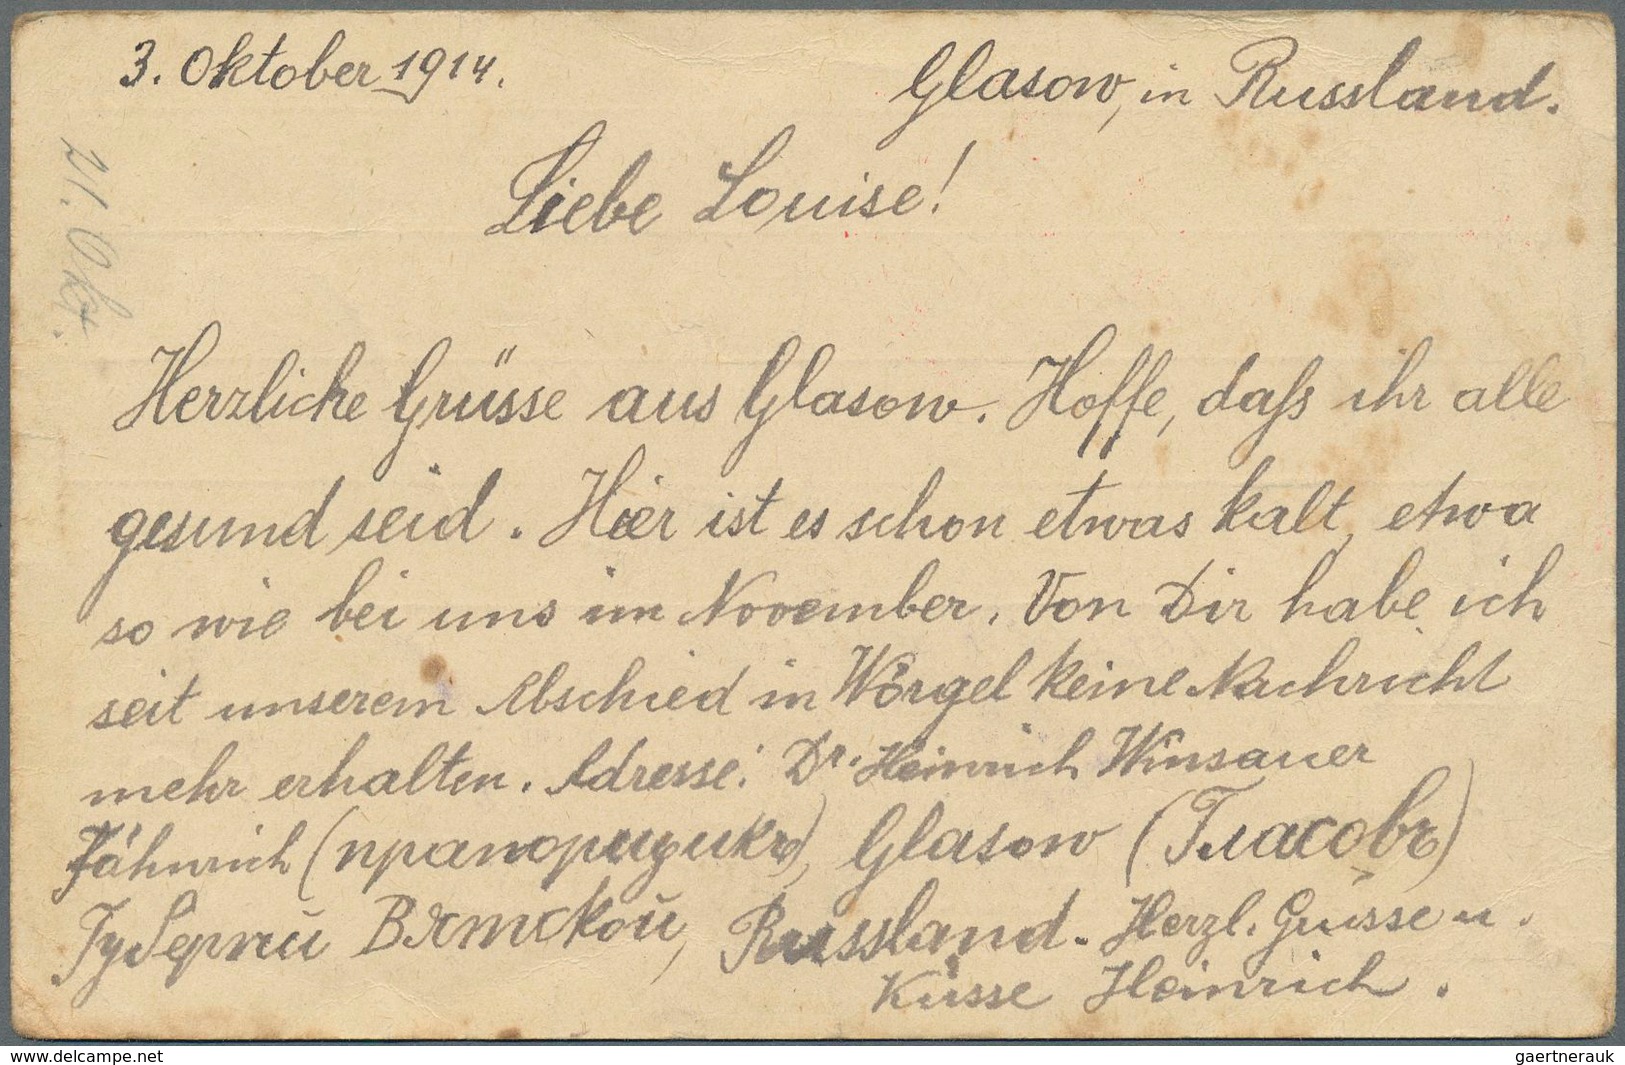 3. Oktober 1914.
Glasow, in Russland.
21. Okt.
Liebe Louise!
Herzliche Grüsse aus Glasow. Hoffe, daß ihr alle
gesund seid. Hier ist es schon etwas kalt, etwa
so wie bei uns im November. Von Dir habe ich
seit unserem Abschied in Wörgel keine Nachricht
mehr erhalten. Adresse: Dr. Heinrich Winsauer
Fähnrich (прапорщикъ), Glasow (Гласовъ)
Губернiи Вятской, Russland. Herzl. Grüsse u.
Küsse Heinrich.
www.delcampe.net
gaertnerauk